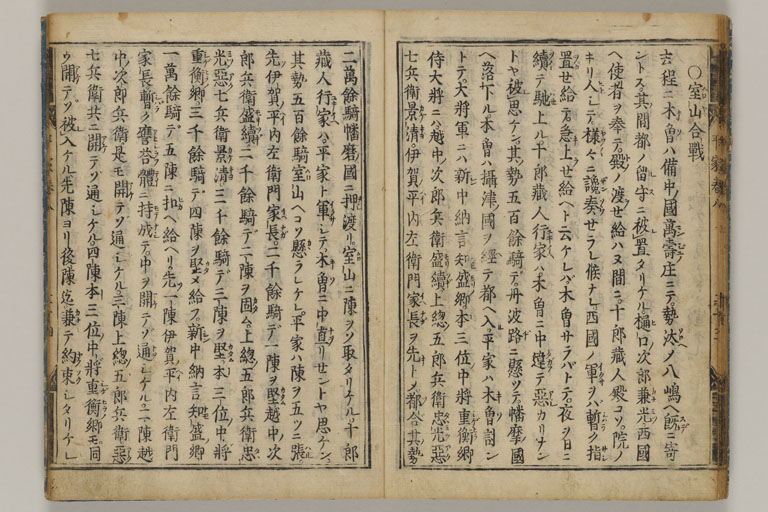 ○室山合戰
去程ニ木曽ハ備中ノ國萬壽庄ニテ勢汰メ八嶋ヘ既ニ寄
ントス其間都ノ留守ニ被置タリケル樋口次郎兼光西國
ヘ使者ヲ奉テ殿ノ渡セ給ハヌ間ニ十郎藏人殿コソ院ノ
キリ人シテ様々ニ讒奏セラレ候ナレ西國ノ軍ヲハ暫ク指
置セ給テ急上セ給ヘト云ケレバ木曽サラバトテ夜ヲ日ニ
續テ馳上ル十郎藏人行家ハ木曽ニ中違テ惡カリナン
トヤ被思ケン其勢五百餘騎デ丹波路ニ懸ツテ幡摩國
ヘ落下ル木曽ハ攝津國ヲ經テ都ヘ入平家ハ木曽討ン
トテ大將軍ニハ新中納言知盛卿本三位中將重衡卿
侍大將ニハ越中次郎兵衛盛續上總五郎兵衛忠光惡
七兵衛景清伊賀平内左衛門家長ヲ先トメ都合其勢
二萬餘騎幡磨國ニ押渡リ室山ニ陳ヲソ取タリケル十郎
藏人行家ハ平家ト軍シテ木曽ニ中直リセントヤ思ケン
其勢五百餘騎室山ヘコソ懸ラレケレ平家ハ陳ヲ五ツニ張
先伊賀平内左衛門家長二千餘騎デ一陳ヲ堅越中次
郎兵衛盛續二千餘騎デ二陳ヲ固ム上總五郎兵衛忠
光惡七兵衛景清三千餘騎デ三陳ヲ堅本三位中將
重衡卿三千餘騎デ四陳ヲ堅メ給フ新中納言知盛卿
一萬餘騎デ五陳ニ扣ヘ給ヘリ先一陳伊賀平内左衛門
家長暫ク譍荅體ニ持成テ中ヲ開テソ通シケル二陳越
中次郎兵衛是モ開テソ通シケル三陳上總五郎兵衛惡
七兵衛共ニ開テソ通シケル四陳本三位中將重衡卿モ同
ウ開テソ被入ケル先陳ヨリ後陳迄兼テ約束シタリケレ